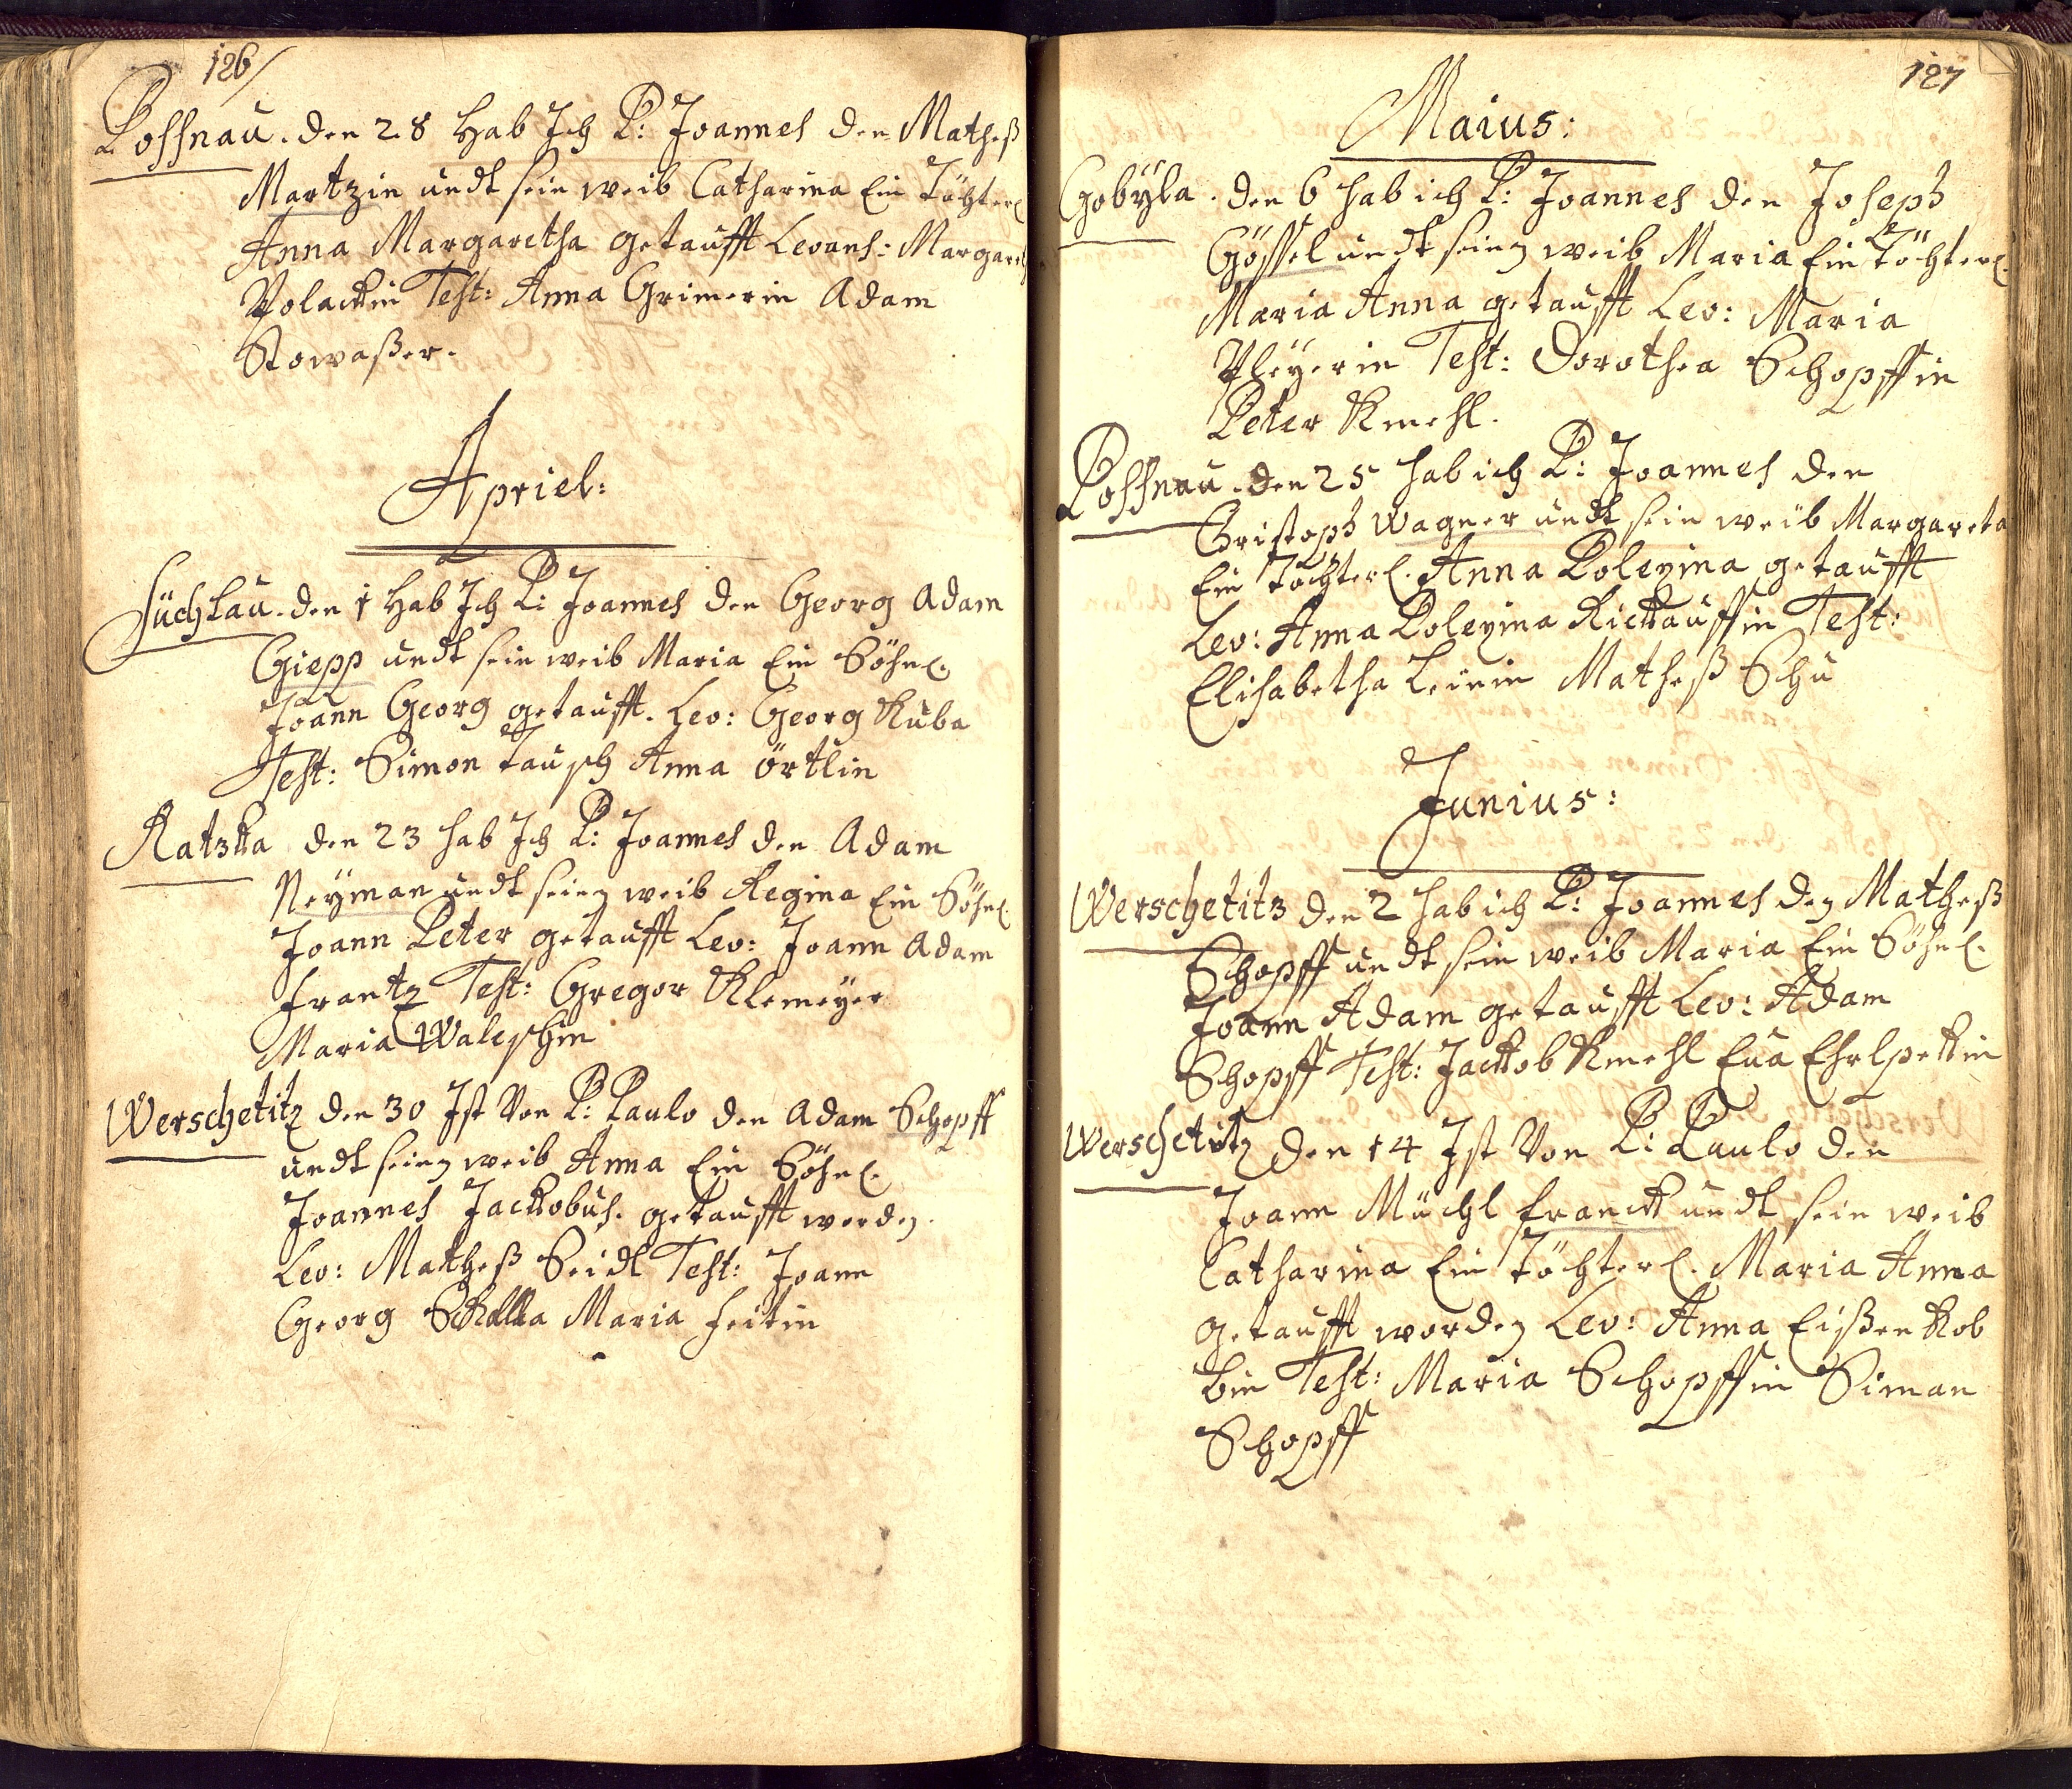 126/
Possnau. den 28 Hab Ich P: Joannes den Matheß
Martzin undt sein weib Catharina Ein Töchterl.
Anna Margaretha getaufft Levans: Margareth
Polackin Test: Anna Grimerin Adam
Stowaßer.
Apriel:
Süchlau. den 1 Hab Ich P: Joannes den Georg Adam
Giepp undt sein weib Maria Ein Söhnl.
Joann Georg getaufft. Lev: Georg Kuba
Test: Simon Tausch Anna örtlin
Ratzka den 23 hab Ich P: Joannes den Adam
Neyman undt seing weib Regina Ein Söhnl.
Joann Peter getaufft Lev: Joann Adam
frantz Test: Gregor Klemeyer
Maria Waleschin
Werschetitz den 30 Ist Von P: Paulo den Adam Schopff
undt seing weib Anna Ein Söhnl.
Joannes Jackobus. getaufft worden.
Lev: Matheß Seidl Test: Joann
Georg Maria feitin
127
Maius:
Gobÿla. den 6 hab ich P: Joannes den Joseph
Gössel undt seing weib Maria Ein Töchterl.
Maria Anna getaufft Lev: Maria
Pleÿerin Test: Dorothea Schopffin
Peter Kmehl.
Possnau. den 25 hab ich P: Joannes den
Christoph Wagner undt sein weib Margareta
Ein Töchterl. Anna Poleyina getaufft
Lev: Anna Poleyina Rickauffin Test:
Elisabetha Leinin Matheß Schu
Junius:
Werschetitz den 2 hab ich P: Joannes den Matheß
Schopff undt sein weib Maria Ein Söhnl.
Joann Adam getaufft Lev: Adam
Schopff Test: Jackob Kmehl Eua Ehrlpekin
Werschetitz den 14 Ist Von P: Paulo den
Joann Müchl franck undt sein weib
Catharina Ein Töchterl. Maria Anna
getaufft worden Lev: Anna Eißenkob
bin Test: Maria Schopffin Siman
Schopff